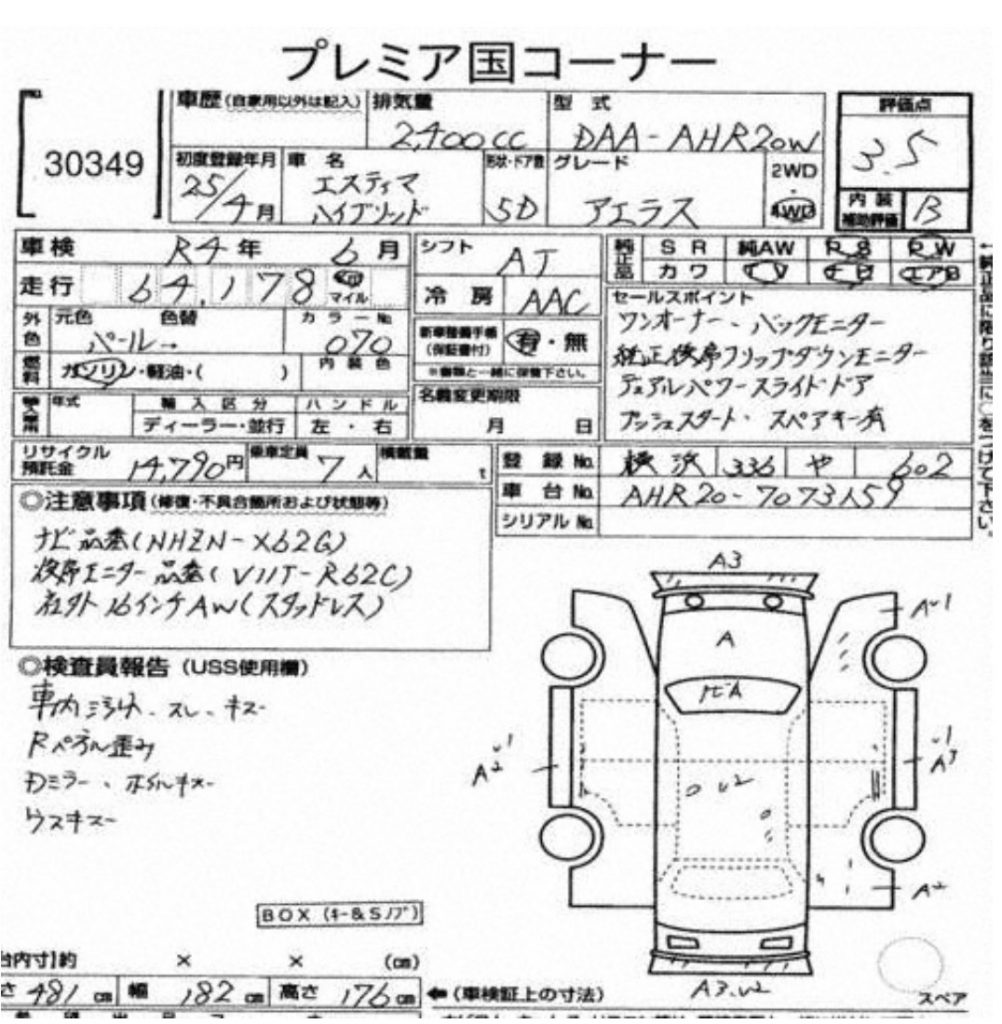 プレミア国コーナー
No.
30349
車歴 (自家用以外は記入) 排気量 型式 評価点
2,400cc DAA-AHR20W 3.5
初度登録年月 車名 形状・ドア数 グレード 2WD・4WD
25/4月 エスティマ ハイブリッド 5D アエラス
内装補助評価 B
車検 R4年 6月 シフト AT
純正品 SR 純AW PS PW
カワ TV ナビ エアB
走行 64,178 km マイル 冷房 AAC
セールスポイント
ワンオーナー、バックモニター
純正後席フリップダウンモニター
デュアルパワースライドドア
プッシュスタート、スペアキー有
外色 元色 色替 カラーNo.
パール→ 070
新車整備手帳(保証書付) 有・無
※書類と一緒に保管下さい。
燃料 ガソリン・軽油・( ) 内装色
名義変更期限
月 日
年式 輸入区分 ハンドル
ディーラー・並行 左・右
リサイクル預託金 14,790円 乗車定員 7人 積載量 t
登録No. 横浜 336 や 602
車台No. AHR20-7073159
シリアルNo.
←純正品に限り該当に○をつけて下さい。
◎注意事項 (修復・不具合箇所および状態等)
ナビ品番(NHZN-X62G)
後席モニター品番(V11T-R62C)
社外16インチAW(スタッドレス)
◎検査員報告 (USS使用欄)
車内汚れ、スレ、キズ
Rペダル歪み
Dミラー、ホイルキズ
ウスキズ
A3
A
A2
A3
A2
A3.U2
U2
BOX (キー&Sノブ)
台内寸)約 × × (cm)
481 cm 幅 182 cm 高さ 176 cm ←(車検証上の寸法)
スペア